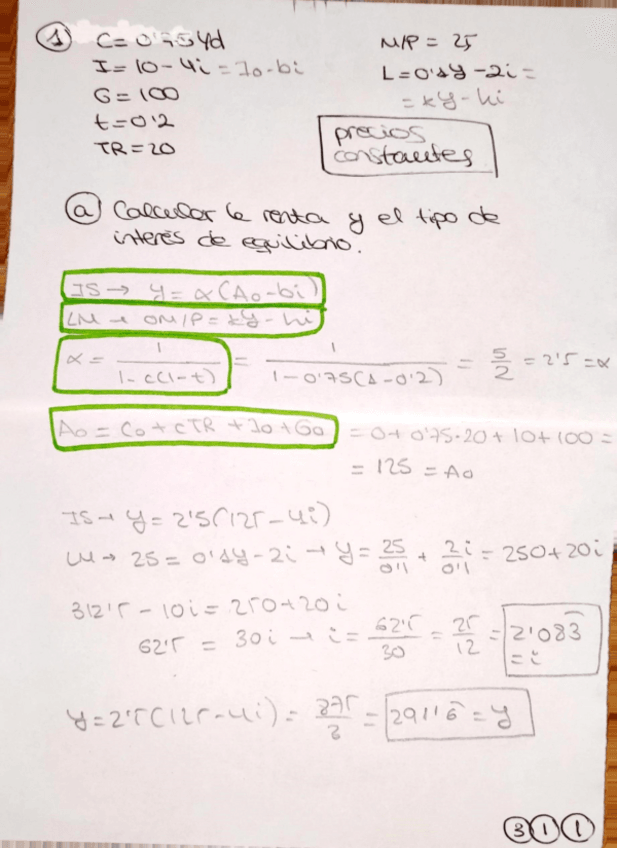 ① C= 0'75Yd
M/P = 25
I= 10-4i = Io-bi
L=0'1Y-2i =
= kY-hi
G= 100
t=0'2
TR=20
precios
constantes
ⓐ Calcular la renta y el tipo de
interés de equilibrio.
IS → Y= α(Ao-bi)
LM → M/P = kY-hi
α = 1/(1-c(1-t)) = 1/(1-0'75(1-0'2)) = 5/2 = 2'5 = α
Ao = Co+cTR+Io+Go = 0+0'75·20+10+100 =
= 125 = Ao
IS → Y= 2'5(125-4i)
LM → 25 = 0'1Y-2i → Y= 25/0'1 + 2i/0'1 = 250+20i
312'5 - 10i = 250+20i
62'5 = 30i → i = 62'5/30 = 25/12 = 2'083
= i
Y=2'5(125-4i) = 875/3 = 291'6 = Y
③①①